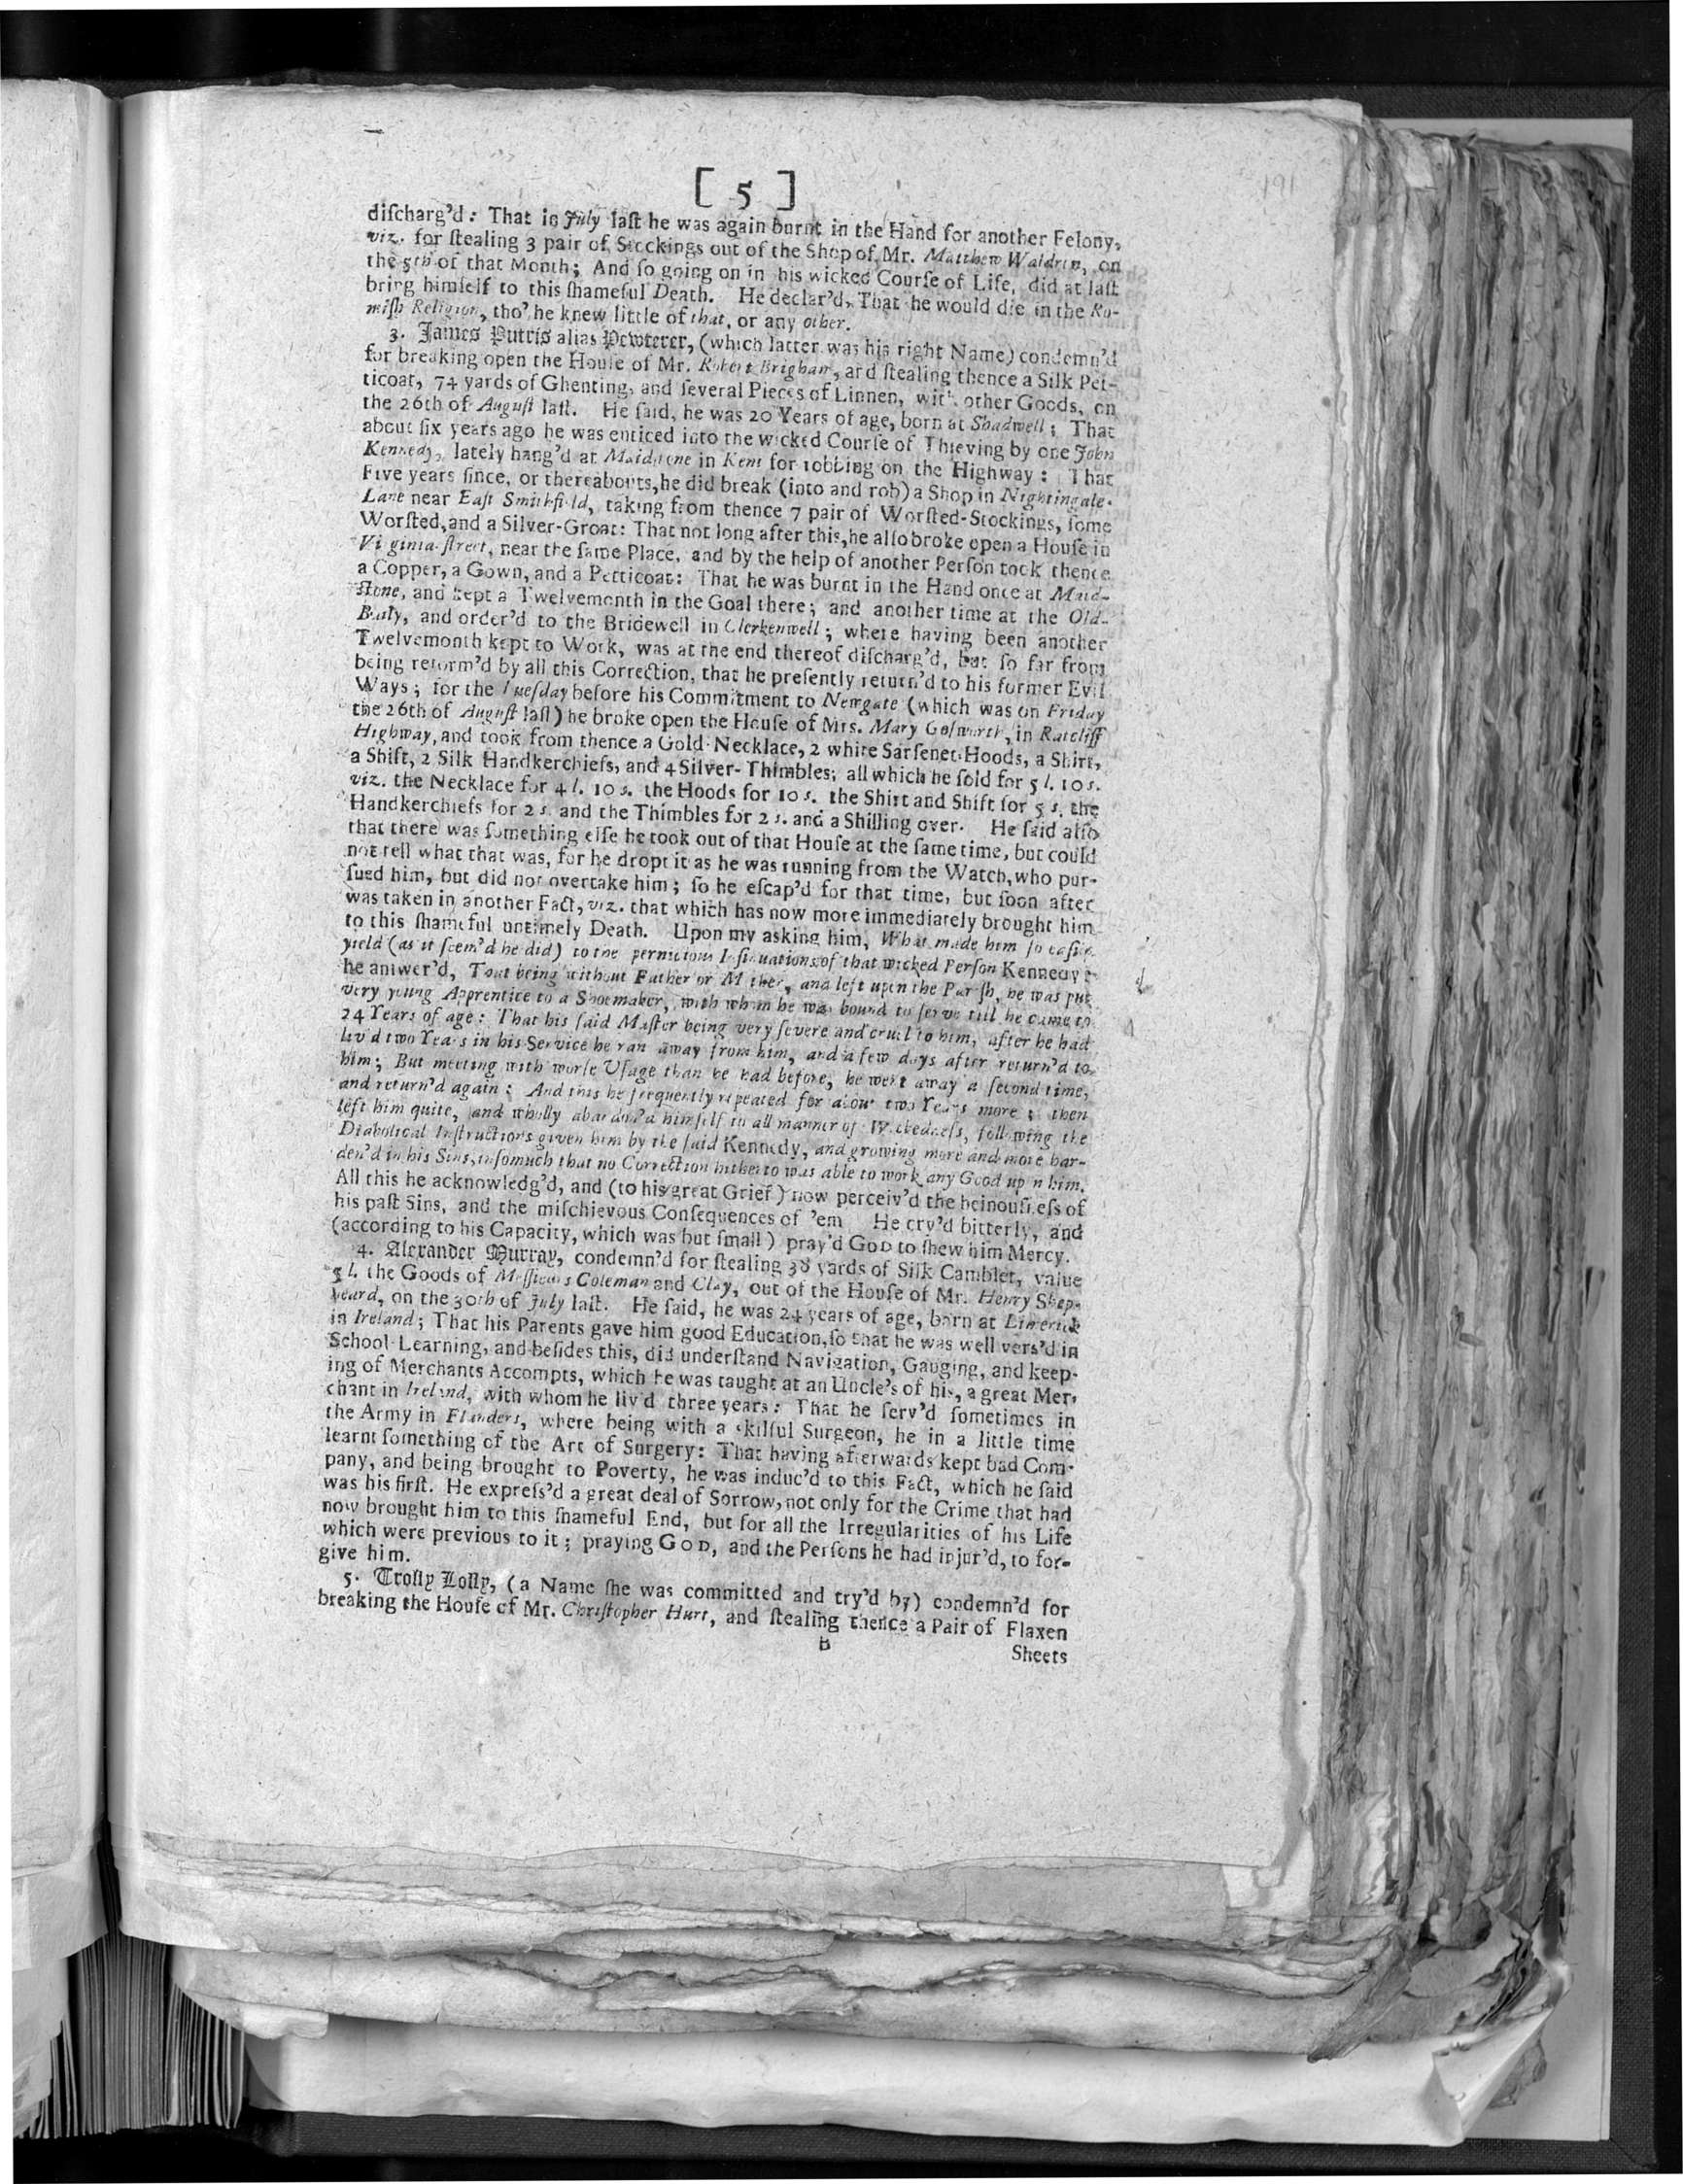 191
[ 5 ]
diſcharg'd: That in July laſt he was again burnt in the Hand for another Felony,
viz. for ſtealing 3 pair of Stockings out of the Shop of Mr. Matthew Waldren, on
the 5th of that Month; And ſo going on in his wicked Courſe of Life, did at laſt
bring himſelf to this ſhameful Death. He declar'd, That he would die in the Ro-
miſh Religion, tho' he knew little of that, or any other.
3. James Puttris alias Pewterer, (which latter was his right Name) condemn'd
for breaking open the Houſe of Mr. Robert Brigham, and ſtealing thence a Silk Pet-
ticoat, 74 yards of Ghenting, and ſeveral Pieces of Linnen, with other Goods, on
the 26th of Auguſt laſt. He ſaid, he was 20 Years of age, born at Shadwell; That
about ſix years ago he was enticed into the wicked Courſe of Thieving by one John
Kennedy, lately hang'd at Maidſtone in Kent for robbing on the Highway: That
Five years ſince, or thereabouts, he did break (into and rob) a Shop in Nightingale-
Lane near Eaſt Smithfield, taking from thence 7 pair of Worſted-Stockings, ſome
Worſted, and a Silver-Groat: That not long after this, he alſo broke open a Houſe in
Virginia-ſtreet, near the ſame Place, and by the help of another Perſon took thence
a Copper, a Gown, and a Petticoat: That he was burnt in the Hand once at Maid-
ſtone, and kept a Twelvemonth in the Goal there; and another time at the Old-
Baily, and order'd to the Bridewell in Clerkenwell; where having been another
Twelvemonth kept to Work, was at the end thereof diſcharg'd, but ſo far from
being reform'd by all this Correction, that he preſently return'd to his former Evil
Ways; for the Tueſday before his Commitment to Newgate (which was on Friday
the 26th of Auguſt laſt) he broke open the Houſe of Mrs. Mary Golſworth, in Ratcliff
Highway, and took from thence a Gold-Necklace, 2 white Sarſenet-Hoods, a Shirt,
a Shift, 2 Silk Handkerchiefs, and 4 Silver-Thimbles; all which he ſold for 5 l. 10 s.
viz. the Necklace for 4 l. 10 s. the Hoods for 10 s. the Shirt and Shift for 5 s. the
Handkerchiefs for 2 s. and the Thimbles for 2 s. and a Shilling over. He ſaid alſo
that there was ſomething elſe he took out of that Houſe at the ſame time, but could
not tell what that was, for he dropt it as he was running from the Watch, who pur-
ſued him, but did not overtake him; ſo he eſcap'd for that time, but ſoon after
was taken in another Fact, viz. that which has now more immediately brought him
to this ſhameful untimely Death. Upon my asking him, What made him ſo eaſily
yield (as it ſeem'd he did) to the pernicious Inſinuations of that wicked Perſon Kennedy?
he anſwer'd, That being without Father or Mother, and left upon the Pariſh, he was put
very young Apprentice to a Shoemaker, with whom he was bound to ſerve till he came to
24 Years of age: That his ſaid Maſter being very ſevere and cruel to him, after he had
liv'd two Years in his Service he ran away from him, and a few days after return'd to
him; But meeting with worſe Uſage than he had before, he went away a ſecond time,
and return'd again: And this he frequently repeated for about two Years more; then
left him quite, and wholly abandon'd himſelf to all manner of Wickedneſs, following the
Diabolical Inſtructions given him by the ſaid Kennedy, and growing more and more har-
den'd in his Sins, inſomuch that no Correction hitherto was able to work any Good upon him.
All this he acknowledg'd, and (to his great Grief) now perceiv'd the heinouſneſs of
his paſt Sins, and the miſchievous Conſequences of 'em He cry'd bitterly, and
(according to his Capacity, which was but ſmall) pray'd GOD to ſhew him Mercy.
4. Alexander Murray, condemn'd for ſtealing 38 yards of Silk Camblet, value
5 l. the Goods of Meſſieurs Coleman and Clay, out of the Houſe of Mr. Henry Shep-
heard, on the 30th of July laſt. He ſaid, he was 24 years of age, born at Limerick
in Ireland; That his Parents gave him good Education, ſo that he was well vers'd in
School-Learning, and beſides this, did underſtand Navigation, Gauging, and keep-
ing of Merchants Accompts, which he was taught at an Uncle's of his, a great Mer-
chant in Ireland, with whom he liv'd three years: That he ſerv'd ſometimes in
the Army in Flanders, where being with a skilful Surgeon, he in a little time
learnt ſomething of the Art of Surgery: That having afterwards kept bad Com-
pany, and being brought to Poverty, he was induc'd to this Fact, which he ſaid
was his firſt. He expreſs'd a great deal of Sorrow, not only for the Crime that had
now brought him to this ſhameful End, but for all the Irregularities of his Life
which were previous to it; praying GOD, and the Perſons he had injur'd, to for-
give him.
5. Trolly Lolly, (a Name ſhe was committed and try'd by) condemn'd for
breaking the Houſe of Mr. Chriſtopher Hurt, and ſtealing thence a Pair of Flaxen
B
Sheets